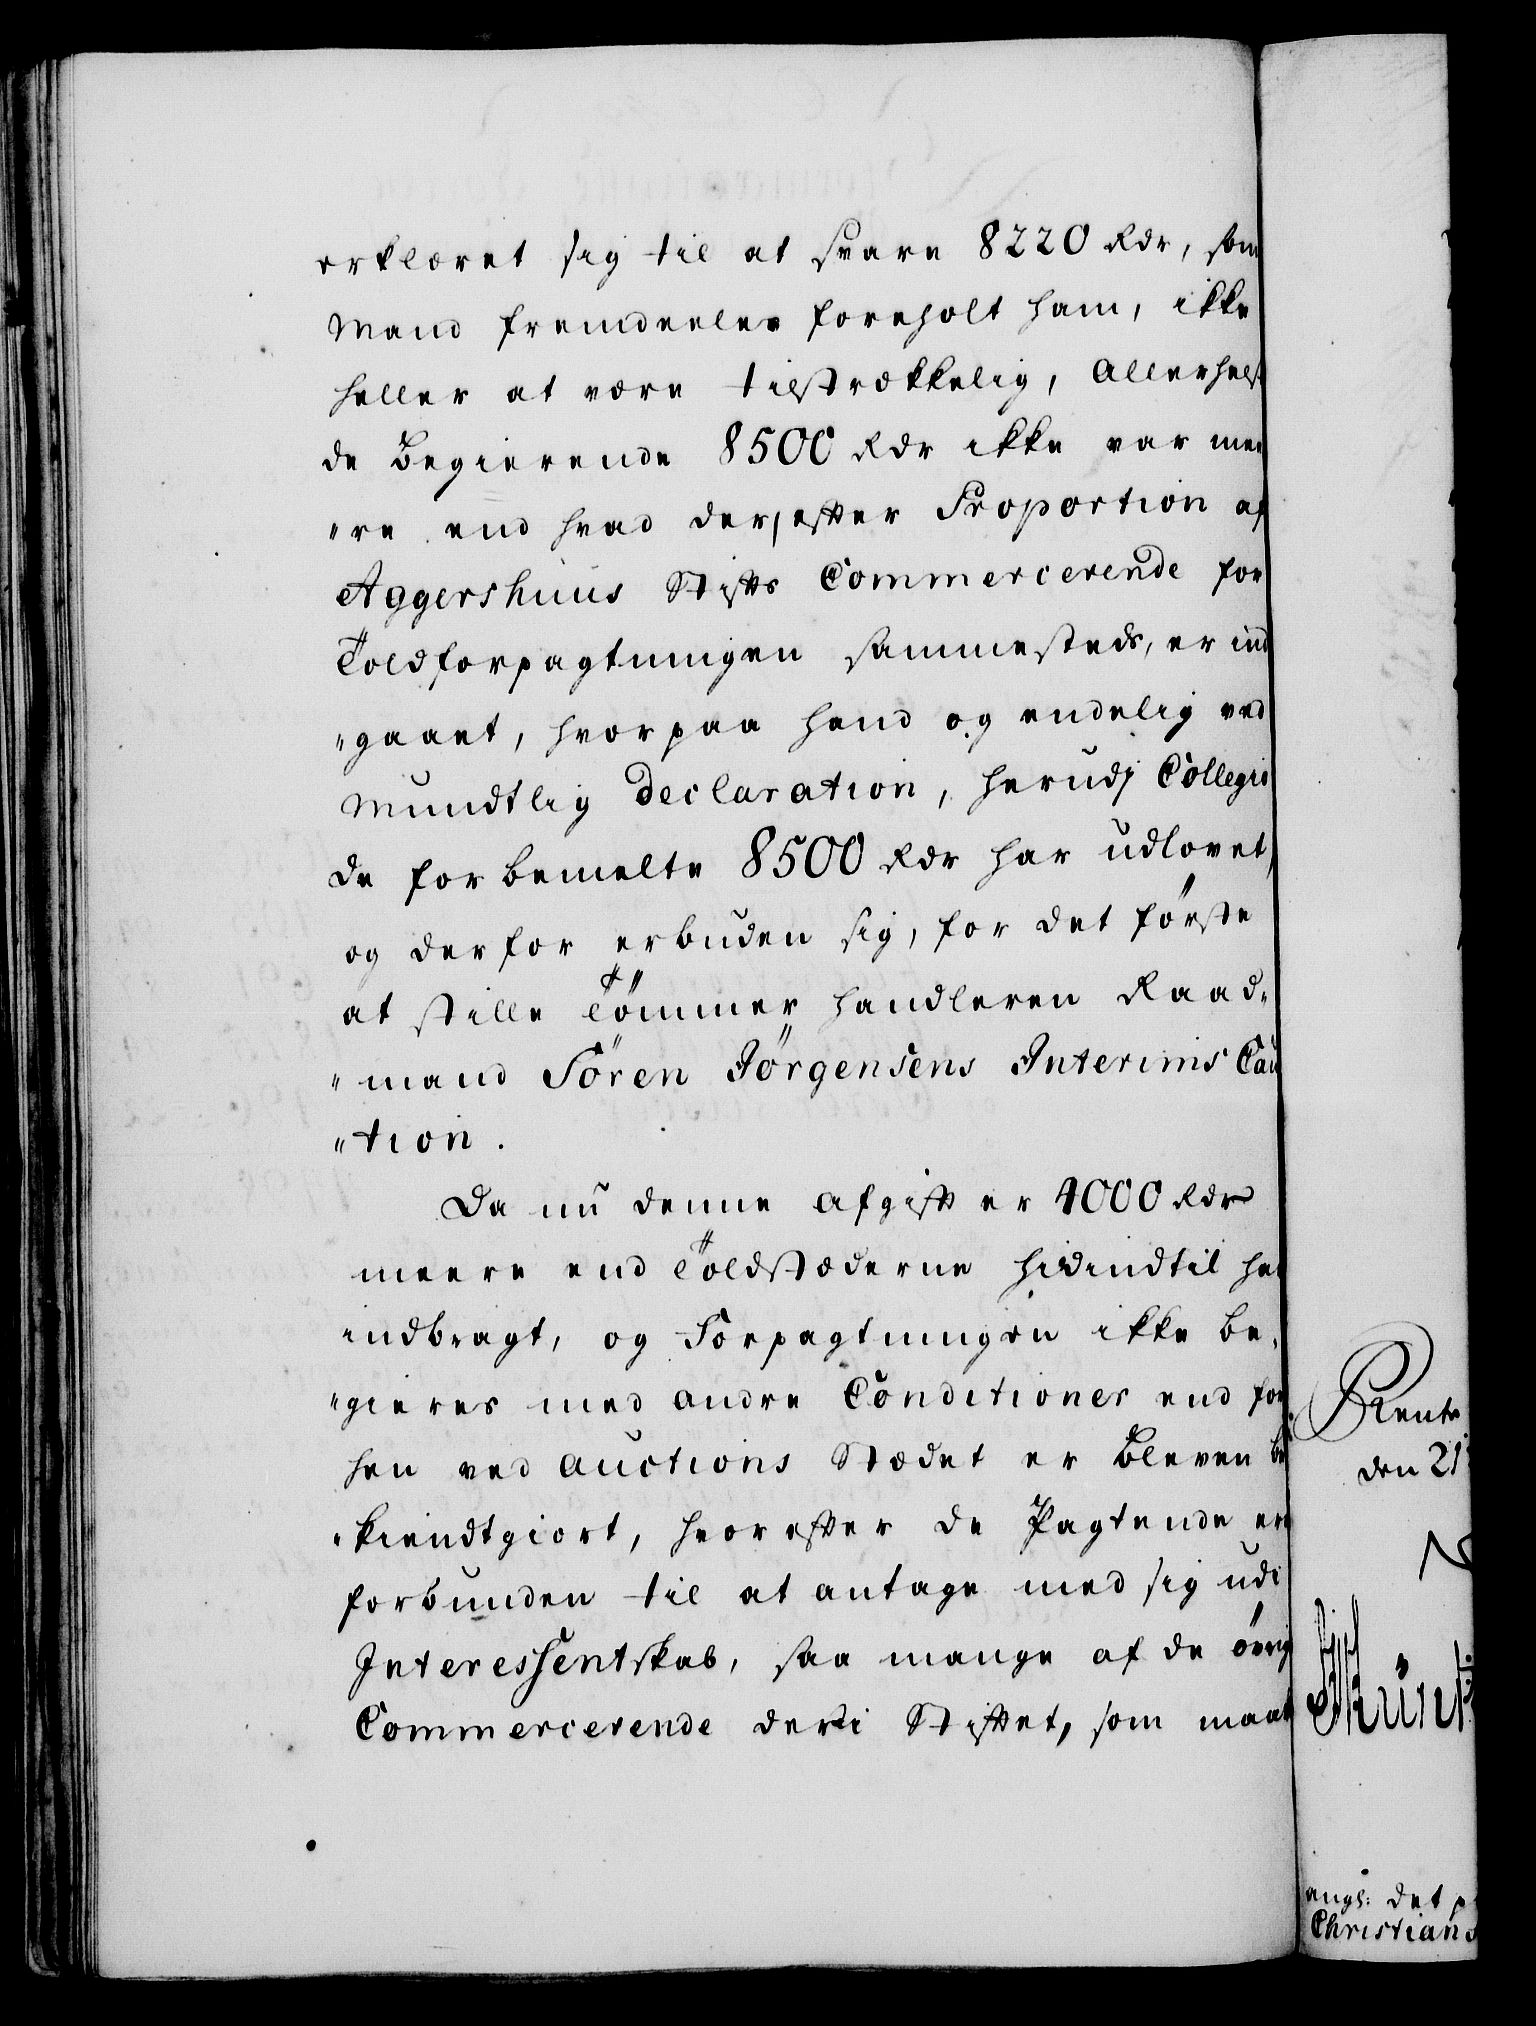 erklæret sig til at svare 8220 Rdr, som
Mand fremdeeles foreholt ham, ikke
heller at være tilstrækkelig, allerhelst
de Begierende 8500 Rdr ikke var mee
"re end hvad der, efter Proportion af
Aggershuus Stifts Commercerende for
Toldforpagtningen sammesteds, er ind
"gaaet, hvorpaa hand og endelig ved
Mundtlig Declaration, herudj Collegio
de forbemelte 8500 Rdr har udlovet,
og derfor erbuden sig, for det første
at stille Tömmerhandleren Raad-
"mand Sören Jörgensens Interims Cau
"tion.
Da nu denne Afgift er 4000 Rdr
meere end Toldstæderne hidindtil har
indbragt, og Forpagtningen ikke be-
"gieres med andre Conditioner end for
hen ved Auctions Stædet er bleven be
"kiendtgiort, hvorefter de Pagtende ere
forbunden til at antage med sig udi
Interessentskab, saa mange af de øvrig
Commercerende der i Stiftet, som maat
Rente
den 21
angl: det p
Christians